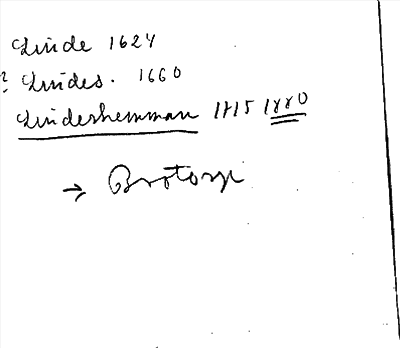 Linde 1624
? Lindes. 1660
Lindeshemman 1715 1880
→ Brotorp